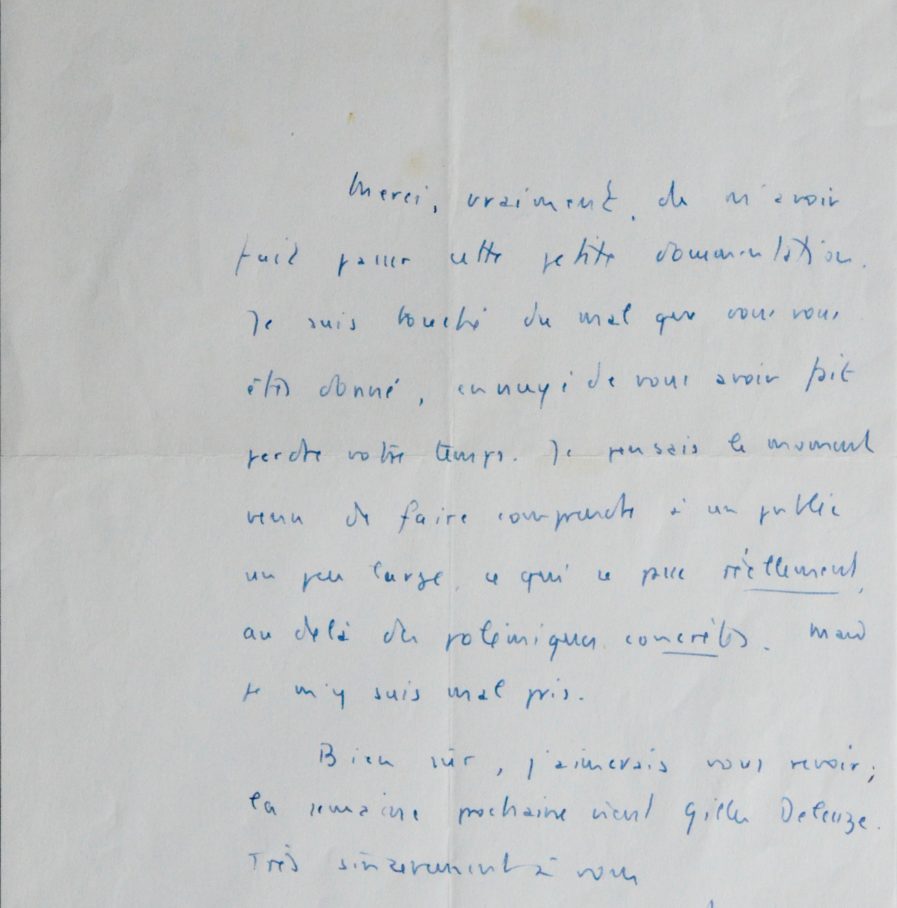 Merci, vraiment, de m'avoir
fait passer cette petite documentation.
Je suis touché du mal que vous vous
êtes donné, ennuyé de vous avoir fait
perdre votre temps. Je pensais le moment
venu de faire comprendre à un public
un peu large, ce qui se passe réellement,
au delà des polémiques concrètes. Mais
je m'y suis mal pris.
Bien sûr, j'aimerais vous revoir ;
la semaine prochaine vient Gilles Deleuze.
Très sincèrement à vous